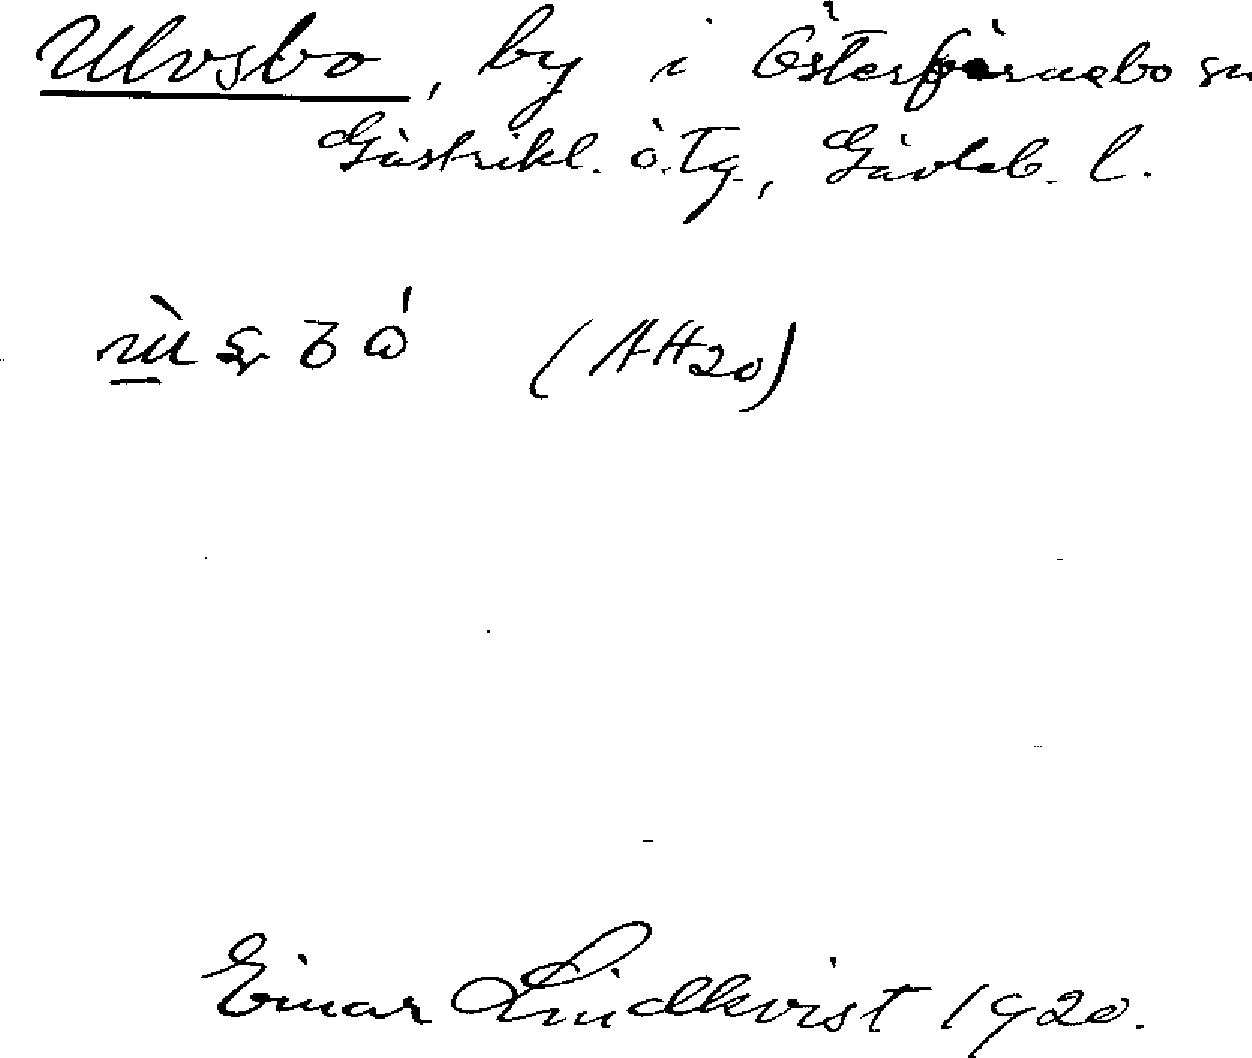 Ulvsbo, by i Österfärnebo sn
Gästrikl. ö. Tg., Gävleb. l.
(AH20)
Einar Lindkvist 1920.